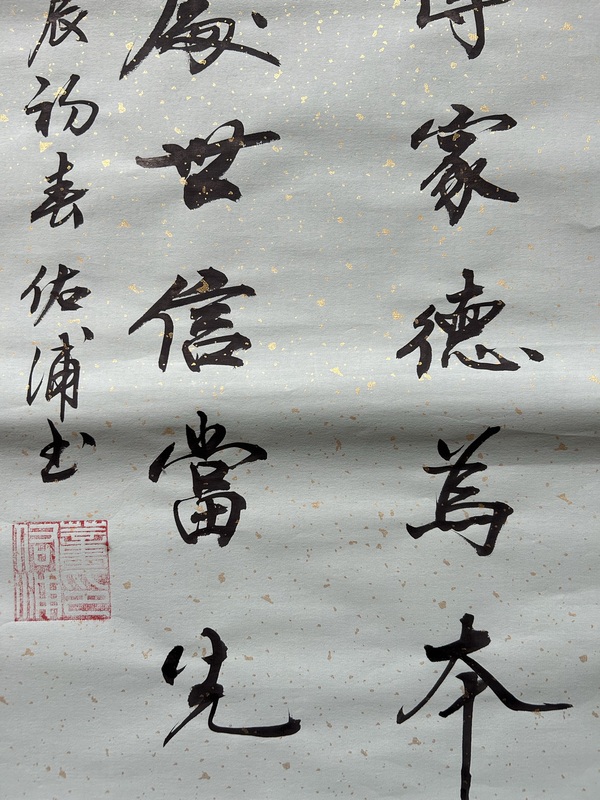 傳家德為本
處世信當先
辰初春佑浦书